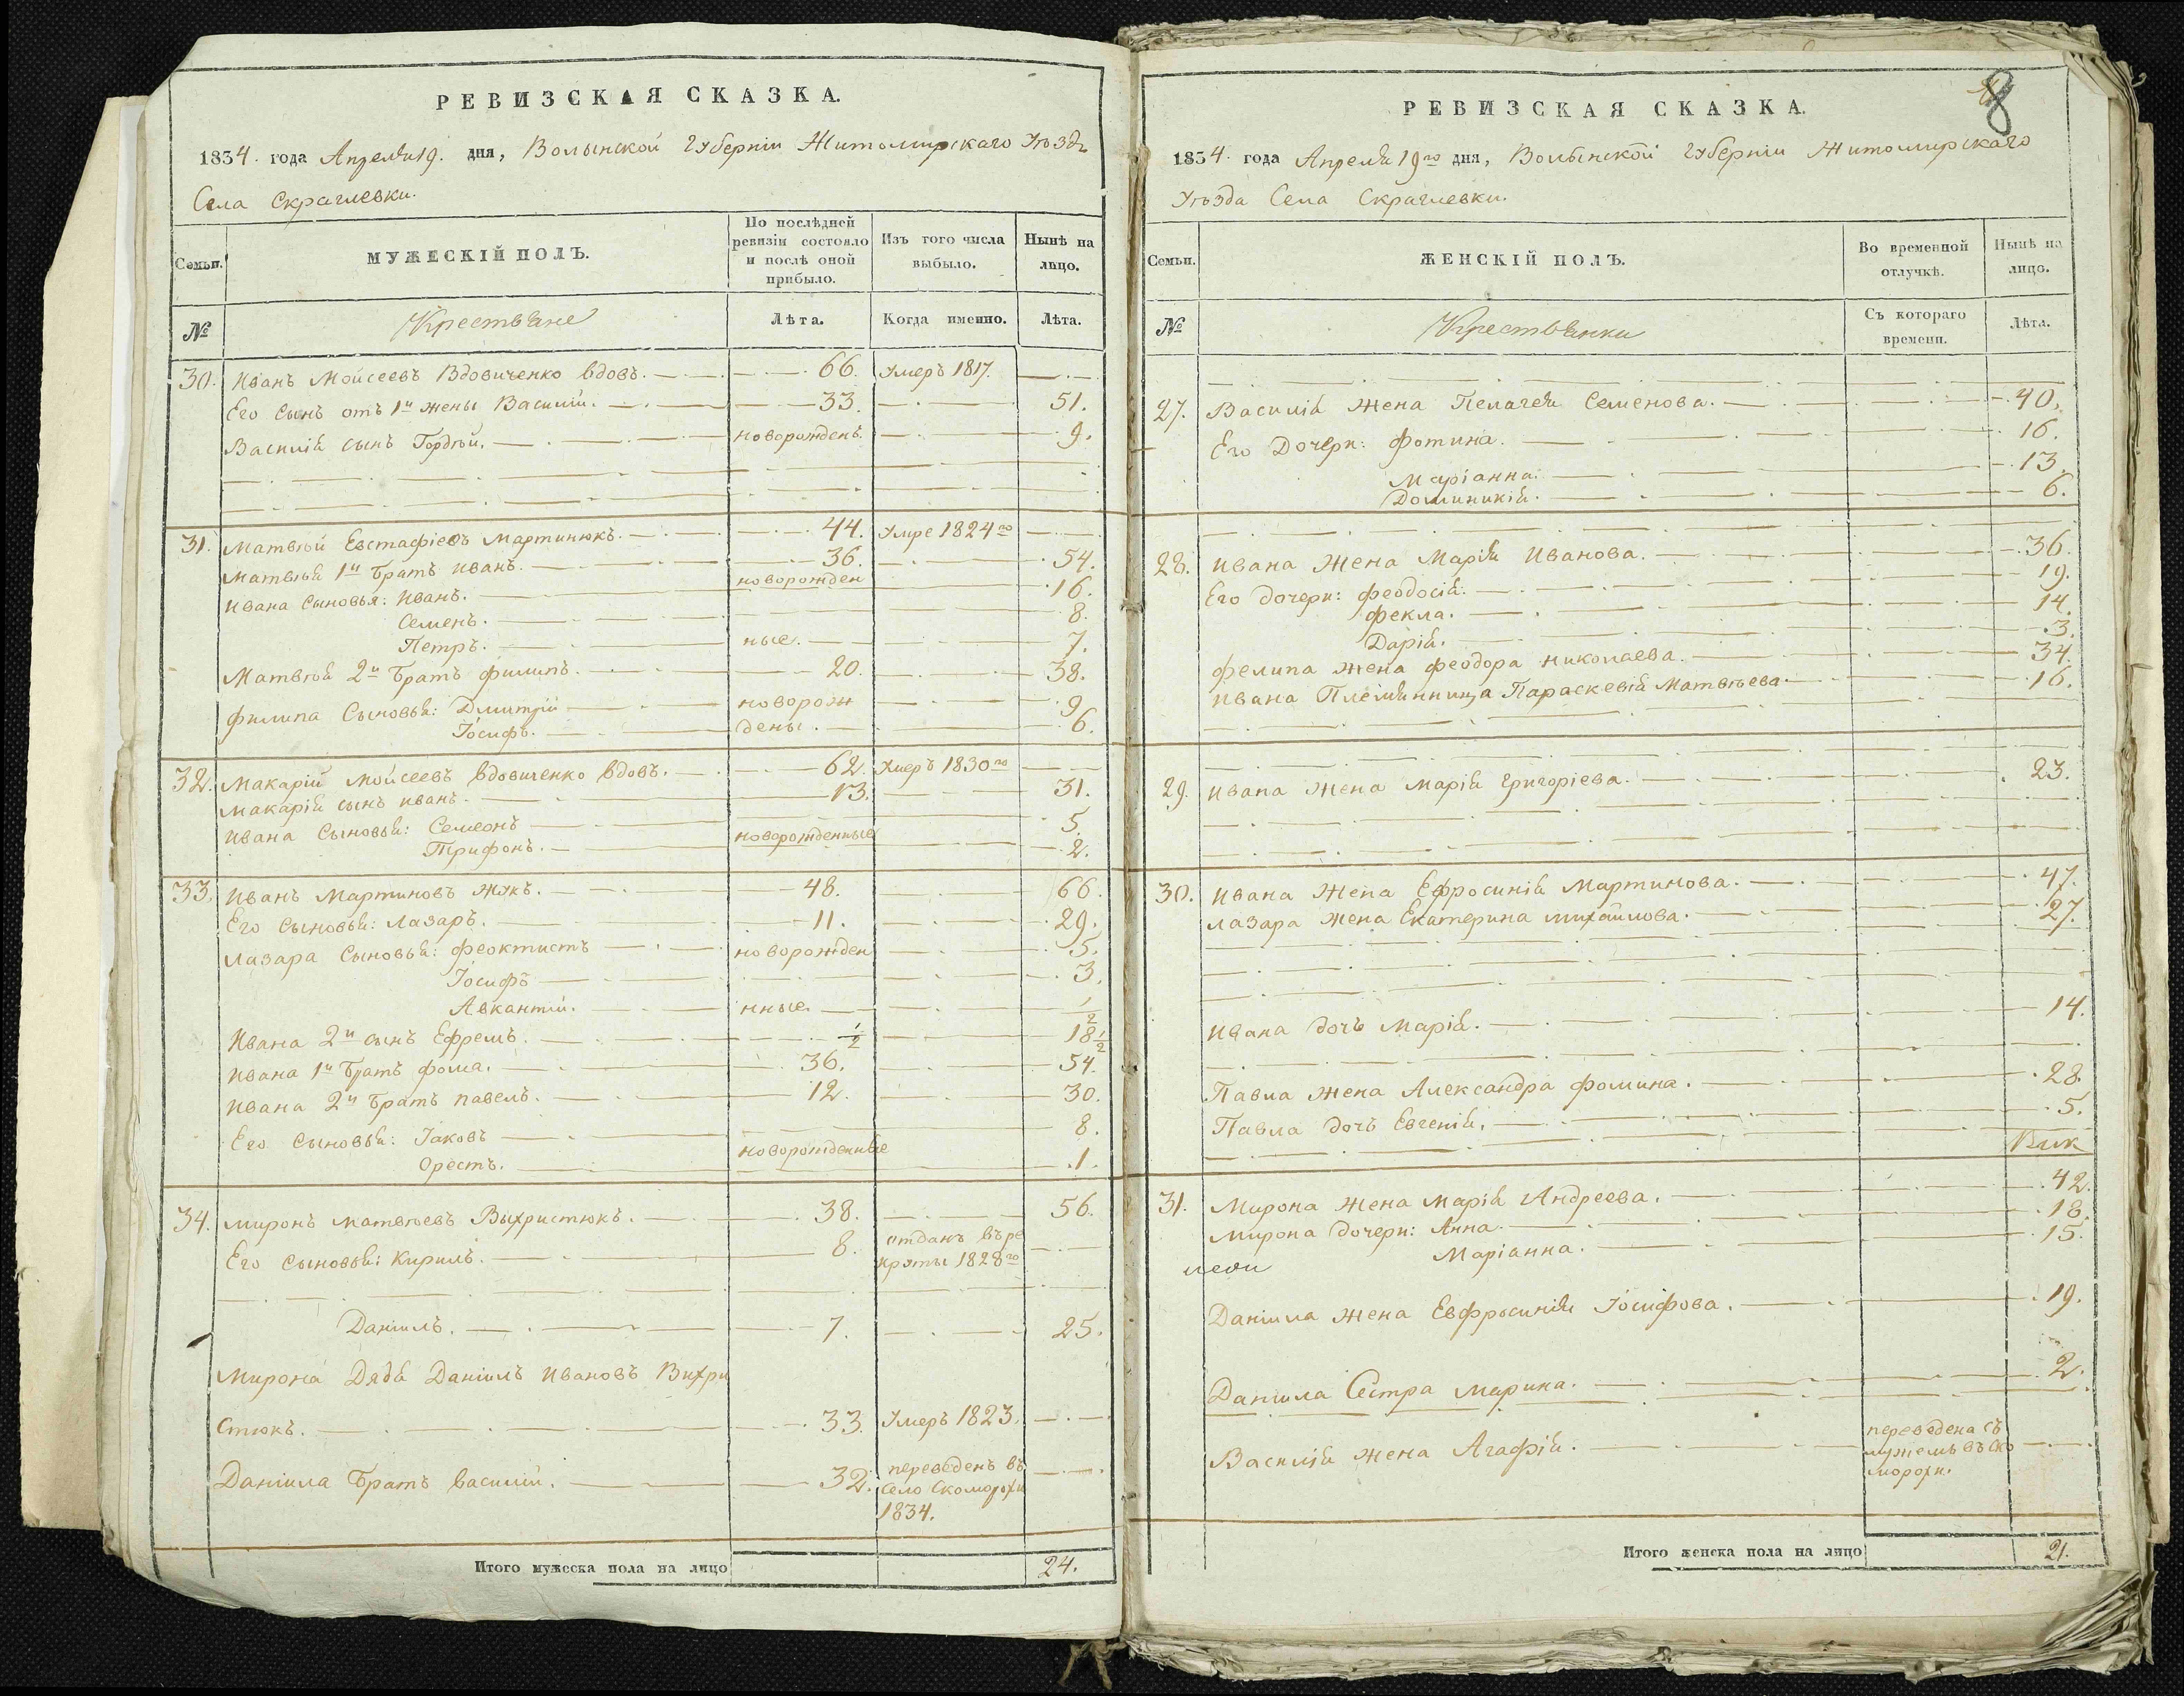 РЕВИЗСКАЯ СКАЗКА.
1834. года Апреля 19. дня, Волынской Губерніи Житомирскаго Уезда
Села Скраглевки.
Семьи.
МУЖЕСКІЙ ПОЛЪ.
По послѣдней ревизіи состояло и послѣ оной прибыло.
Изъ того числа выбыло.
Нынѣ на лицо.
№
Крестьяне
Лѣта.
Когда именно.
Лѣта.
30. Иванъ Мойсеевъ Вдовиченко вдовъ. 66. Умеръ 1817.
Его Сынъ отъ 1й жены Василій. 33. 51.
Василія сынъ Гордѣй. новорожденъ. 9.
31. Матвѣй Евстафіевъ Мартинюкъ. 44. Умре 1824го
Матвѣя 1й Братъ Иванъ. 36. 54.
Ивана Сыновья: Иванъ. новорожден 16.
Семенъ. 8.
Петръ. ные. 7.
Матвѣя 2й Братъ Филипъ. 20. 38.
Филипа Сыновья: Дмитрій новорож 9
Іосифъ. дены. 6.
32. Макарій Мойсеевъ Вдовиченко вдовъ. 62. Умеръ 1830го
Макарія сынъ Иванъ. 13. 31.
Ивана Сыновья: Семеонъ новорожденные 5.
Трифонъ. 2.
33. Иванъ Мартиновъ Жукъ. 48. 66.
Его Сыновья: Лазаръ. 11. 29.
Лазара Сыновья: Феоктистъ новорожден 5.
Іосифъ 3.
Авкантій. нные. 1/2
Ивана 2й сынъ Ефремъ. 1/2 18 1/2
Ивана 1й Братъ Фома. 36. 54.
Ивана 2й Братъ Павелъ. 12. 30.
Его Сыновья: Іаковъ 8.
новорожденные
Орестъ. 1.
34. Миронъ Матвѣевъ Выхристюкъ. 38. 56.
Его Сыновья: Кирилъ. 8. отданъ въ ре
круты 1828го
Даніилъ. 7. 25.
Мирона Дядя Даніилъ Ивановъ Вихри
стюкъ. 33. Умеръ 1823.
Даніила Братъ Василій. 32. переведенъ въ
село Скоморохи
1834.
Итого мужеска пола на лицо 24.
8
РЕВИЗСКАЯ СКАЗКА.
1834. года Апреля 19го дня, Волынской Губерніи Житомирскаго
Уѣзда Села Скраглевки.
Семьи.
ЖЕНСКІЙ ПОЛЪ.
Во временной отлучкѣ.
Нынѣ на лицо.
№
Крестьянки
Съ котораго времени.
Лѣта.
27. Василія Жена Пелагея Семенова. 40.
Его Дочери: Фотина. 16.
Маріанна. 13.
Доминикія. 6.
28. Ивана Жена Марія Иванова. 36.
Его дочери: Феодосія. 19.
Фекла. 14.
Дарія. 3.
Фелипа Жена Феодора Николаева. 34.
Ивана Племянница Параскевія Матвѣева. 16.
29. Ивана Жена Марія Григоріева. 23.
30. Ивана Жена Ефросинія Мартинова. 47.
Лазара Жена Екатерина Михайлова. 27.
Ивана дочь Марія. 14.
Павла Жена Александра Фомина. 28.
Павла дочь Евгенія. 5.
31. Мирона Жена Марія Андреева. 42.
Мирона дочери: Анна. 18.
Маріанна. 15.
Даніила Жена Евфросинія Іосифова. 19.
Даниила Сестра Марина. 2.
Василія Жена Агафія. переведена съ
мужемъ въ Ско
морохи.
Итого женска пола на лицо 21.